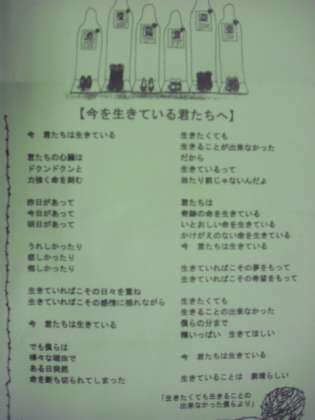 【今を生きている君たちへ】
今　君たちは生きている
君たちの心臓は
ドゥンドゥンと
力強く命を刻む
昨日があって
今日があって
明日があって
うれしかったり
悲しかったり
悔しかったり
生きていればこその日々を重ね
生きていればこその感情に揺れながら
今　君たちは生きている
でも僕らは
様々な理由で
ある日突然
命を断ち切られてしまった
生きたくても
生きることが出来なかった
だから
生きているって
当たり前じゃないんだよ
君たちは
奇跡の命を生きている
いとおしい命を生きている
かけがえのない命を生きている
今　君たちは生きている
生きていればこその夢をもって
生きていればこその希望をもって
生きたくても
生きることの出来なかった
僕らの分まで
精いっぱい　生きてほしい
今　君たちは生きている
生きていることは　素晴らしい
「生きたくても生きることの
出来なかった僕らより」